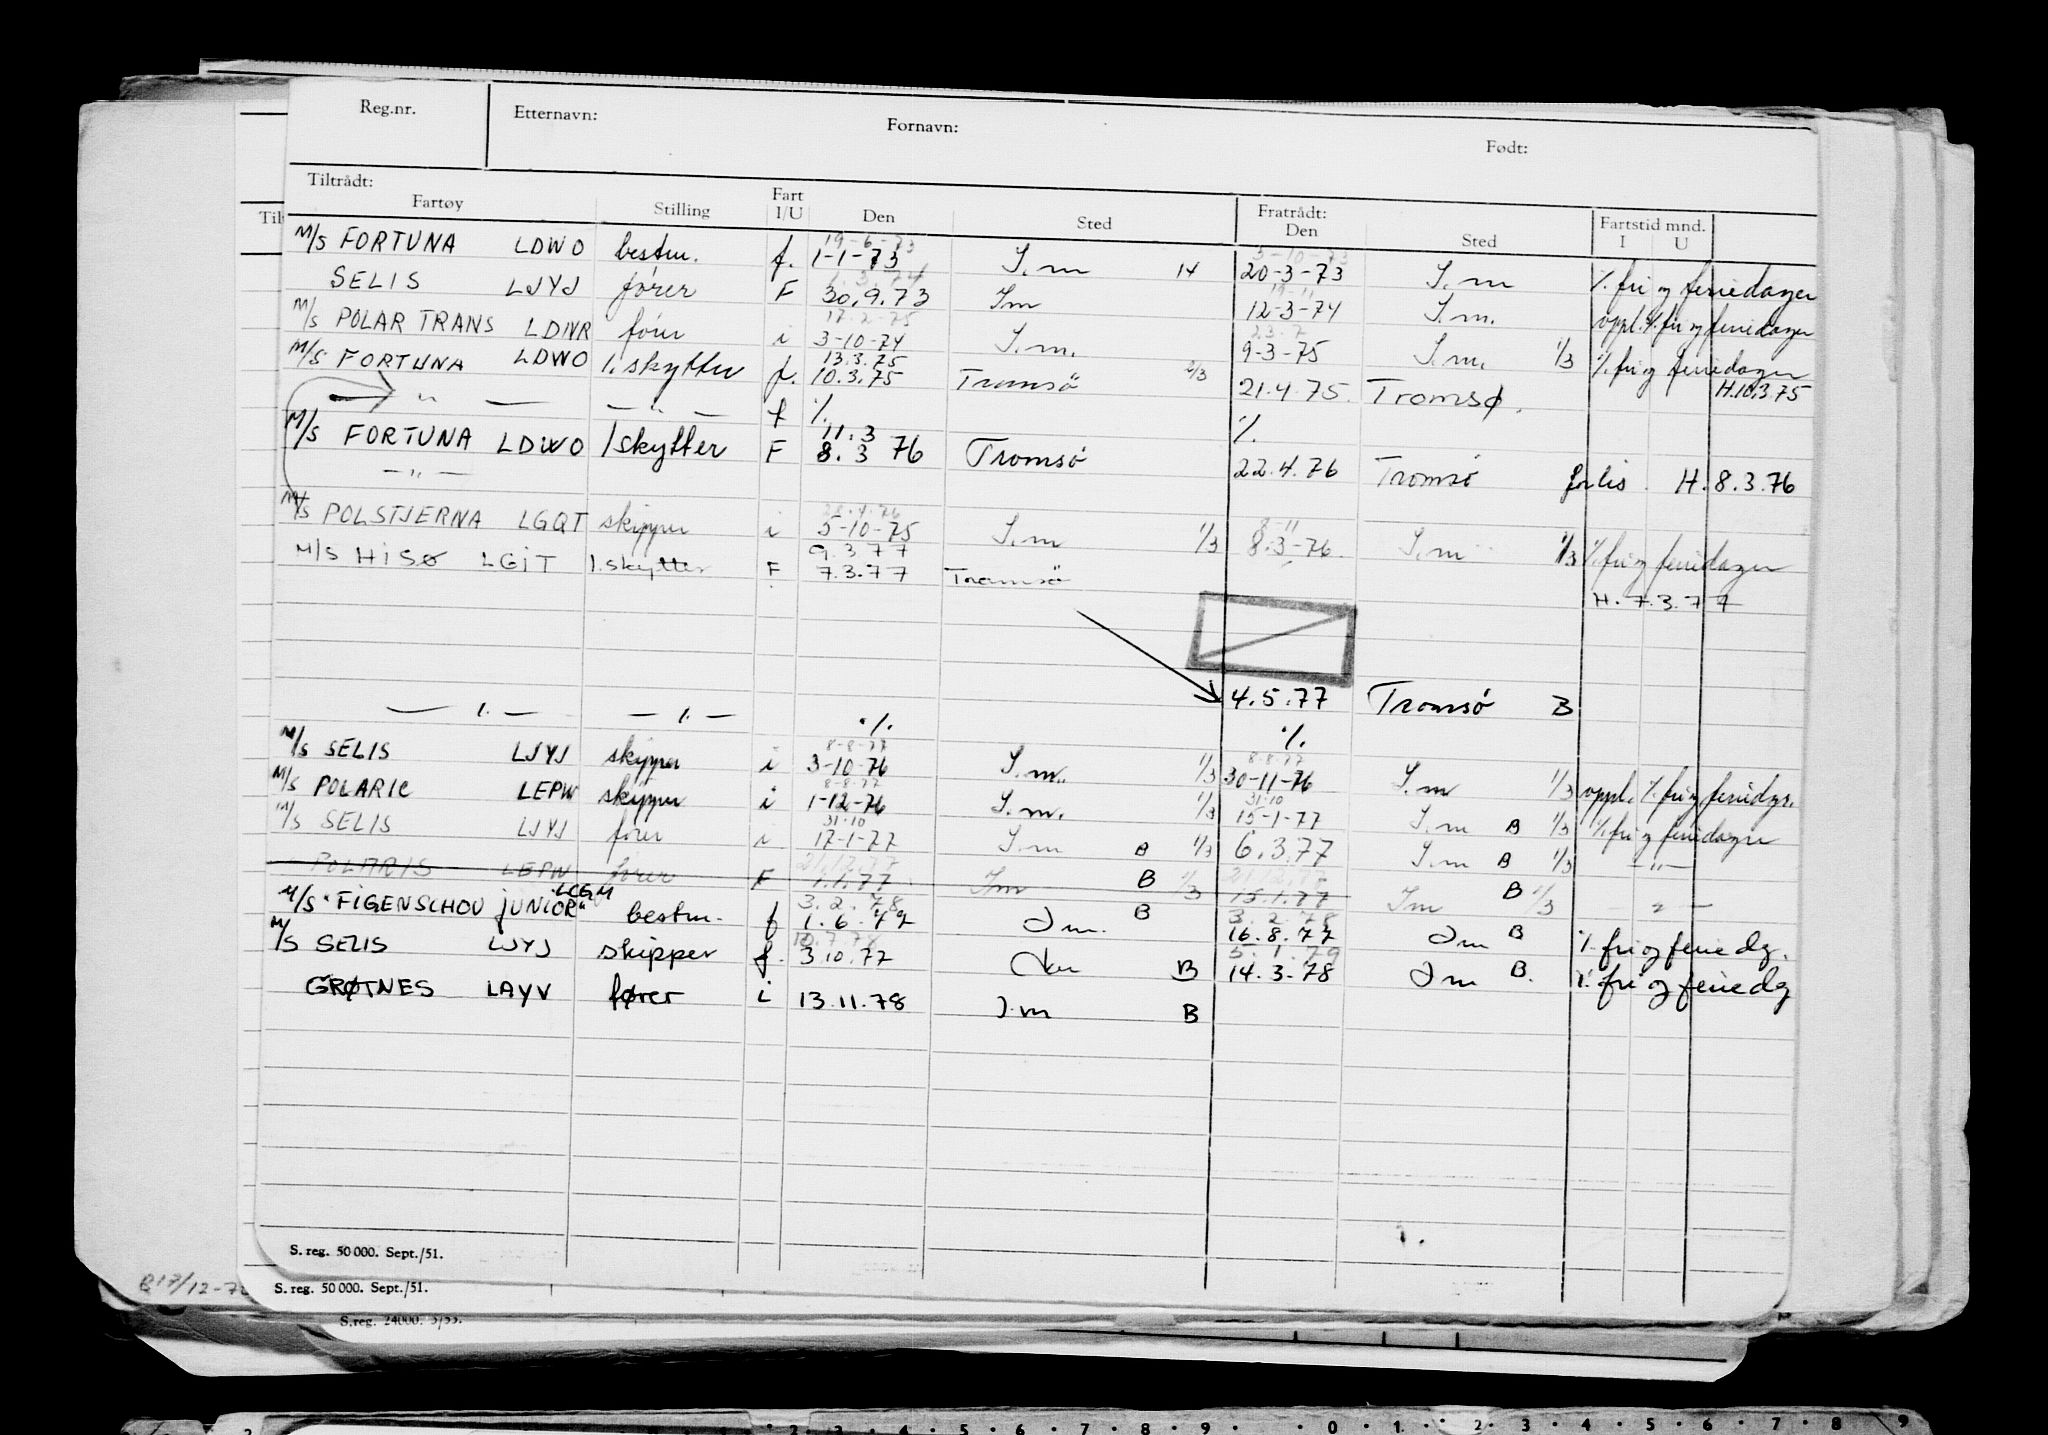 Reg.nr. Etternavn: Fornavn: Født:
Tiltrådt: Fratrådt:
Fartøy Stilling Fart I/U Den Sted Den Sted Fartstid mnd. I U
19-6-73 5-10-73
M/S FORTUNA LDWO bestm. f. 1-1-73 I.m 14 20-3-73 I.m % fri og feriedager
SELIS LJYJ fører F 30.9.73 Im 12-3-74 I.m. oppl. % fri og feriedager
17-2-75 23.7
M/S POLAR TRANS LDNR fører i 3-10-74 I.m. 9-3-75 I.m. 1/3 % fri og feriedager
13.3.75
M/S FORTUNA LDWO 1. skytter f. 10.3.75 Tromsö 2/3 21.4.75. Tromsø. H.10.3.75
— " — — " — f % %
11.3
M/S FORTUNA LDWO 1 skytter F 8.3 76 Tromsö 22.4.76 Tromsö forlis. H. 8.3.76
— " —
28.4.76 8-11
M/S POLSTJERNA LGQT skipper i 5-10-75 I.m 1/3 8.3-76. I.m 1/3 % fri og feriedager
9.3.77
M/S HISØ LGIT 1. skytter F 7.3.77 Tromsö
H. 7.3.77
4.5.77 Tromsö B
— " — — " — % %
8-8-77 8-8-77
M/S SELIS LJYJ skipper i 3-10-76 I.m. 1/3 30-11-76 I.m 1/3 oppl. % fri og feriedgr.
8-8-77 31-10
M/S POLARIC LEPW skipper i 1-12-76 I.m. 1/3 15-1-77 I.m B 1/3 % fri og feriedager
31-10
M/S SELIS LJYJ fører i 17-1-77 I.m B 1/3 6.3.77 I.m B 1/3 — " —
21.12.77 21.12.77
POLARIS LEPW fører F 1.1.77 Im B 1/3 15.1.77 Im B 1/3 — " —
LCGM 3.2.78 3.2.78
M/S "FIGENSCHOU JUNIOR" bestm. f 1.6.77 I m. B 16.8.77 I m B % fri og feriedg.
10.7.78 5.1.79
M/S SELIS LJYJ skipper f. 3.10.77 I m B 14.3.78 I m B. % fri og feriedg
GRØTNES LAYV fører i 13.11.78 I.m B
S. reg. 50 000. Sept./51.
S. reg. 50 000. Sept./51.
S.reg. 24000. 5/53.